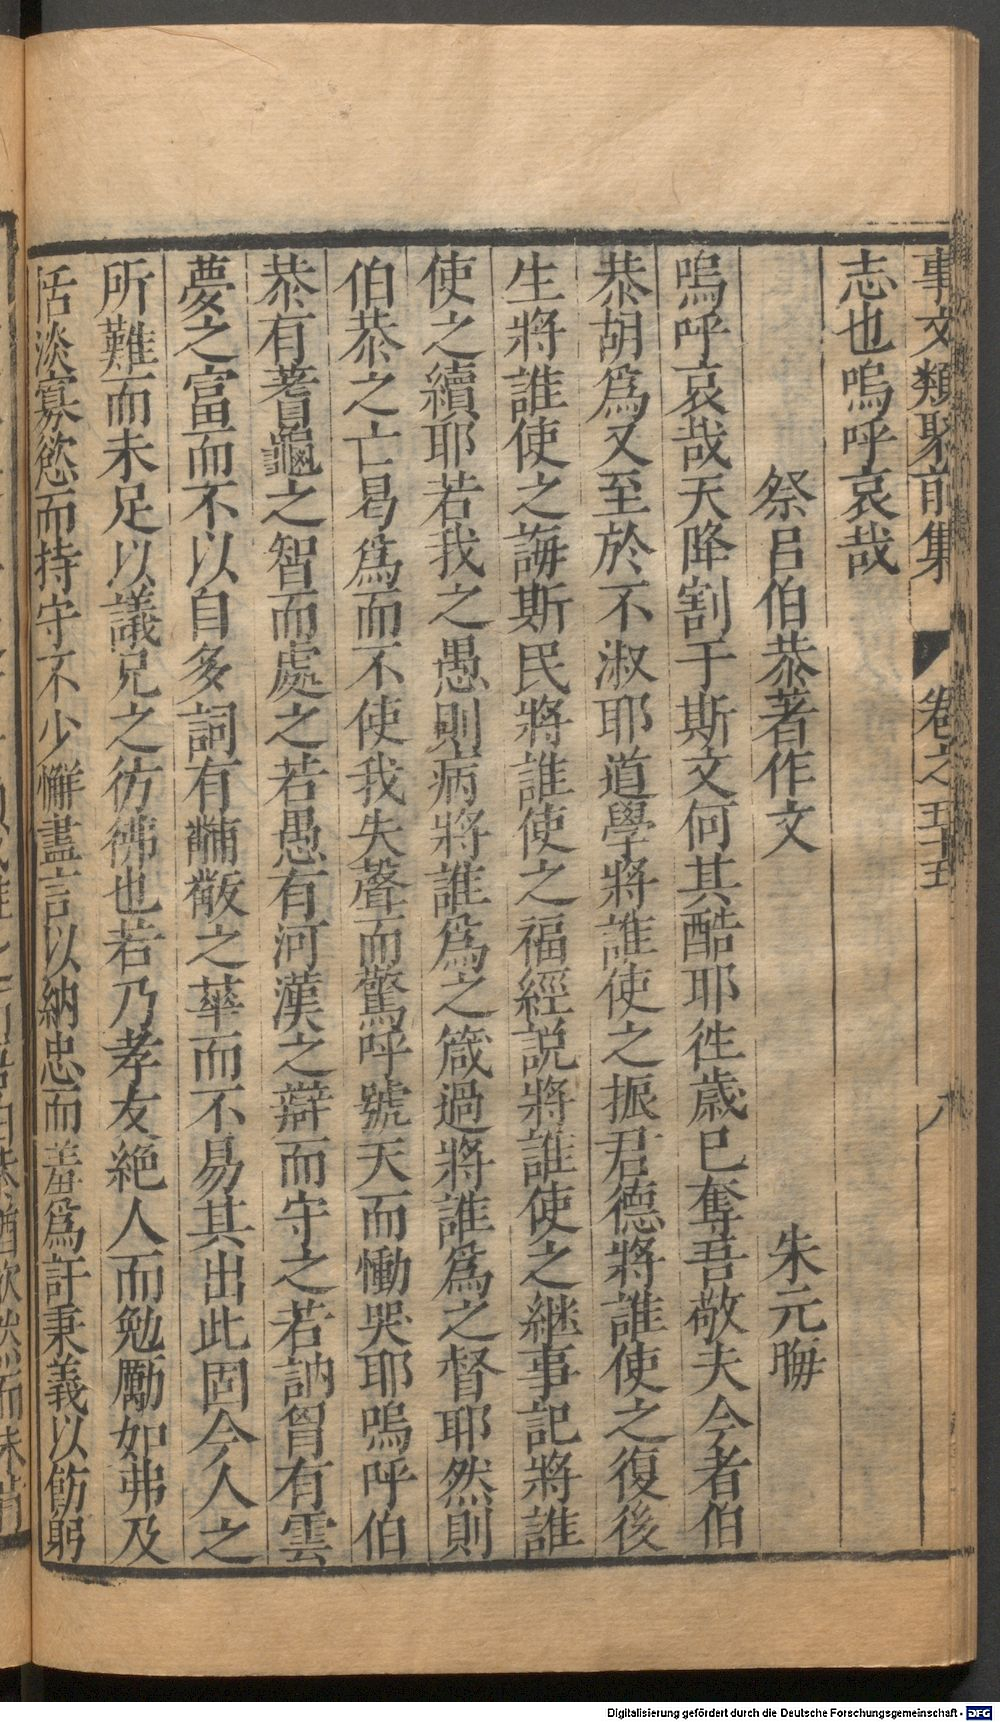 事文類聚前集 卷之五十五 八
志也嗚呼哀哉
祭呂伯恭著作文 朱元晦
嗚呼哀哉天降割于斯文何其酷耶徃歲已奪吾敬夫今者伯
恭胡爲又至於不淑耶道學將誰使之振君德將誰使之復後
生將誰使之誨斯民將誰使之福經説將誰使之継事記將誰
使之續耶若我之愚則病將誰爲之箴過將誰爲之督耶然則
伯恭之亡曷爲而不使我失聲而驚呼號天而慟哭耶嗚呼伯
恭有蓍龜之智而處之若愚有河漢之辯而守之若訥胷有雲
夢之富而不以自多詞有黼黻之華而不易其出此固今人之
所難而未足以議兄之彷彿也若乃孝友絶人而勉勵如弗及
恬淡寡慾而持守不少懈盡言以納忠而羞爲訐秉義以飭躬
Digitalisierung gefördert durch die Deutsche Forschungsgemeinschaft - DFG